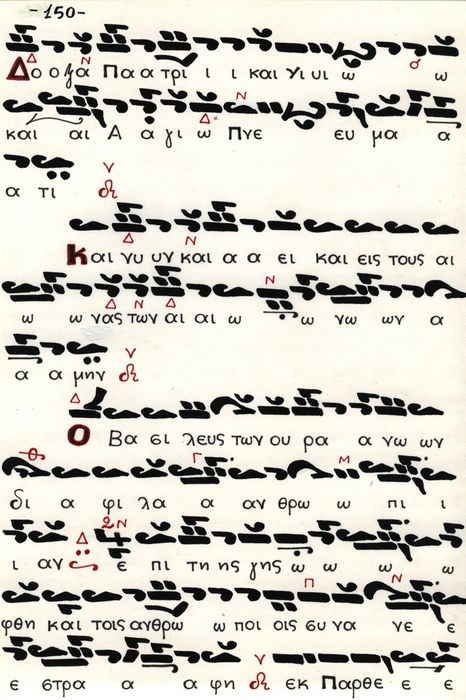 -150-
Δο ο ξα Πα α τρι ι ι και Υι υι ω ω
και αι Α α γι ω Πνε ευ μα α
α τι
Και νυ υν και α α ει και εις τους αι
ω ω νας των αι αι ω ω νω ων α
α α μην
Ο Βα σι λευς των ου ρα α νω ων
δι α φι λα α αν θρω ω πι ι
ι αν ε πι τη ης γης ω ω ω ω
φθη και τοις ανθρω ω ποι οις συ να νε ε
ε στρα α α φη εκ Παρθε ε ε